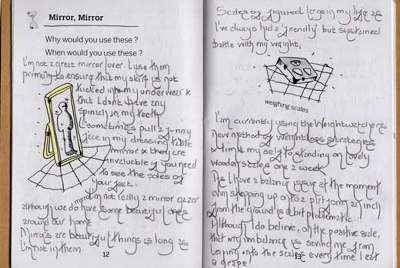 Mirror, Mirror
Why would you use these?
When would you use these?
I'm not a great mirror lover. I use them
primarily to ensuring that my skirt is not
kicked into my underwear &
that I don't have any
spinach in my teeth
I sometimes pull a funny
face in my dressing table
mirror & they are
invaluable if you need
to see the soles of
your feet.
I'm not really a mirror
although we do have some beautiful ones
around our home
Mirrors are beautiful things as long as
I'm not in them
12
Scales of
I've always had a 'friendly' but sustained
battle with my weight,
weighing scales
I'm currently using the Weightwatchers
new method of weight loss strategies
& limit my self to standing on lovely
scales once a week
As I have a balance issue at the moment
even stepping up onto a platform an inch
from the ground is a bit problematic
Although I do believe, on the positive side,
that my imbalance is saving me from
onto the scales every time I eat
a grape